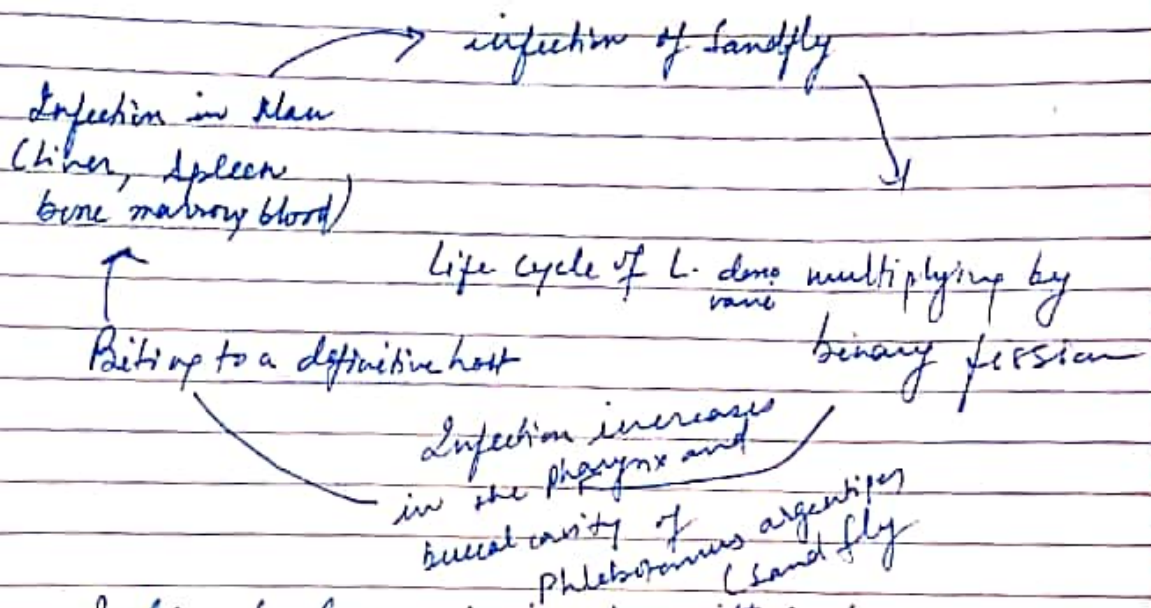 infection of Sandfly
Infection in Man
(Liver, Spleen
bone marrow, blood)
Life cycle of L. dono
vani
multiplying by
binary fission
Biting to a definitive host
Infection increases
in the Pharynx and
buccal cavity of
Phlebotomus argentipes
(Sand fly